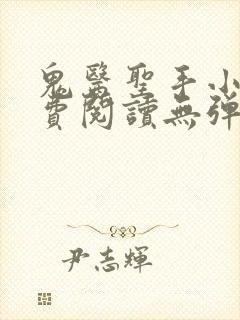 鬼醫聖手小
費閱讀無彈
尹志輝